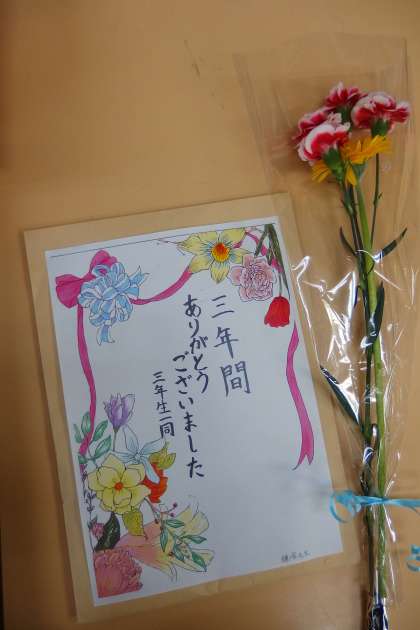 三年間
ありがとう
ございました
三年生一同